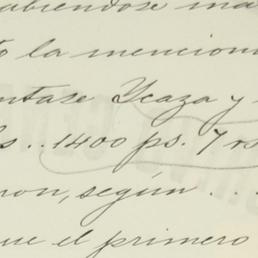 ubiéndose ma
to la menciona
ntase Ycaza y
s .. 1400 ps. 7 rs
ron, según . . .
que el primero